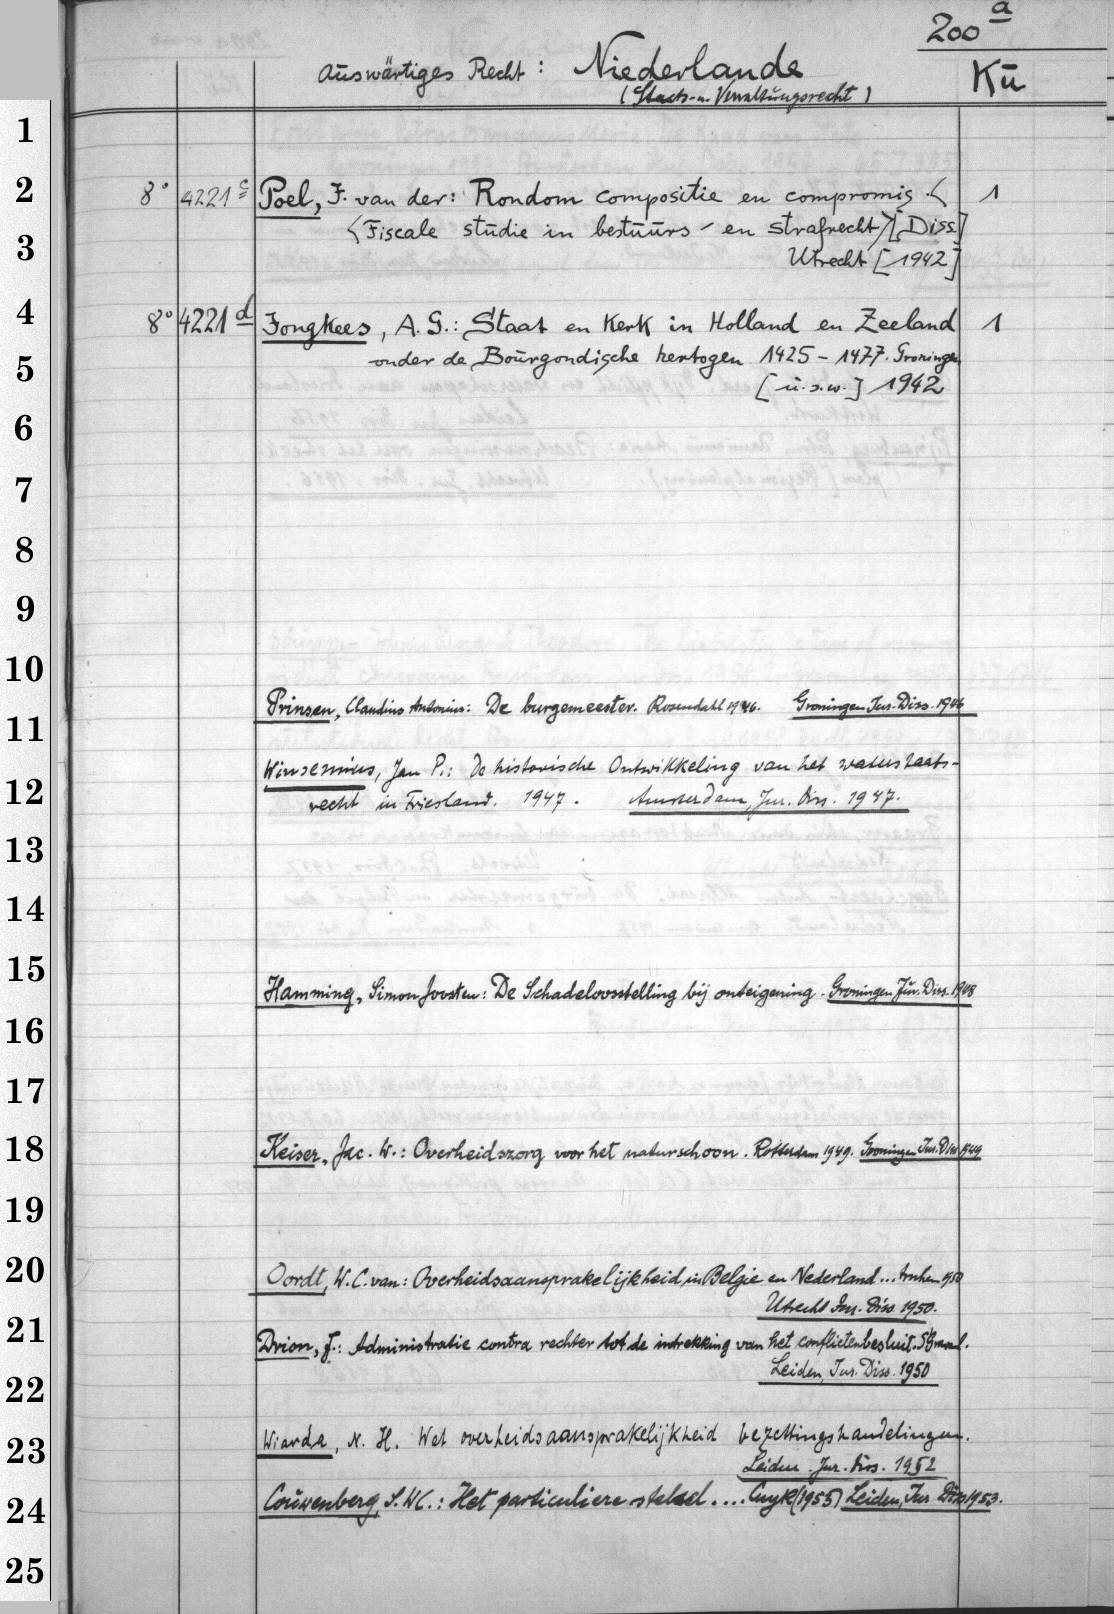 200 a
Auswärtiges Recht: Niederlande
Kü
(Staats- u. Verwaltungsrecht)
1
2 8° 4221 c Poel, F. van der: Rondom compositie en compromis. < 1
3 <Fiscale studie in bestuurs- en strafrecht>[Diss.]
Utrecht [1942]
4 8° 4221 d Jongkees, A. G.: Staat en Kerk in Holland en Zeeland 1
5 onder de Bourgondische hertogen 1425-1477. Groningen
[u.s.w.] 1942
6
7
8
9
10
11 Prinsen, Claudius Antonius: De burgemeester. Rosendahl 1946. Groningen Jur. Diss. 1946
12 Winsemius, Jan P.: De historische Ontwikkeling van het waterstaats-
recht in Friesland. 1947. Amsterdam, Jur. Diss. 1947.
13
14
15 Hamming, Simon Joosten: De Schadeloosstelling bij onteigening. Groningen Jur. Diss. 1948
16
17
18 Keiser, Jac. W.: Overheidszorg voor het naturschoon. Rotterdam 1949. Groningen Jur. Diss 1949
19
20 Oordt, W. C. van: Overheidsaansprakelijkheid in Belgie en Nederland... Arnhem 1950
Utrecht Jur. Diss 1950.
21 Drion, J.: Administratie contra rechter tot de intrekking van het conflictenbesluit.
22 Leiden, Jur. Diss. 1950
23 Wiarda, N. H. Wet overheidsaansprakelijkheid bezettingshandelingen.
Leiden. Jur. Diss. 1952
24 Couwenberg, S. W.: Het particuliere stelsel.... Cuyk (1953) Leiden, Jur. Diss 1953.
25